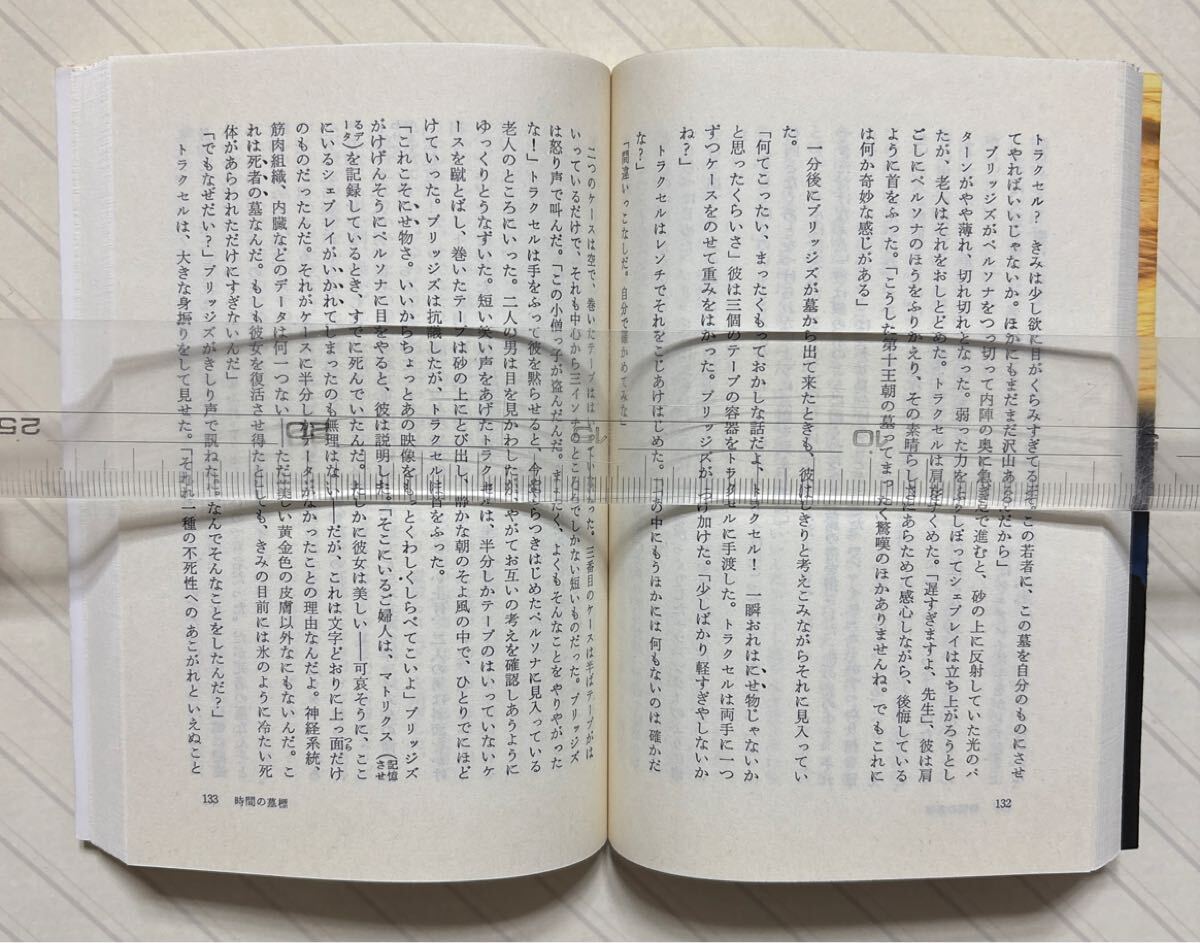 トラクセル？　きみは少し欲に目がくらみすぎてる。この若者に、この墓を自分のものにさせ
てやればいいじゃないか。ほかにもまだまだ沢山あるんだから」
ブリッジズがペルソナをつっ切って内陣の奥に急ぎ足で進むと、砂の上に反射していた光のパ
ターンがやや薄れ、切れ切れとなった。弱った力をふりしぼってシェプレイは立ち上がろうとし
たが、老人はそれをおしとどめた。トラクセルは肩をすくめた。「遅すぎますよ、先生」彼は肩
ごしにペルソナのほうをふりかえり、その素晴らしさにあらためて感心しながら、後悔している
ように首をふった。「こうした第十王朝の墓ってまったく驚嘆のほかありませんね。でもこれに
は何か奇妙な感じがある」
一分後にブリッジズが墓から出て来たときも、彼はじきりと考えこみながらそれに見入ってい
た。
「何てこったい、まったくもっておかしな話だよ、トラクセル！　一瞬おれはにせ物じゃないか
と思ったくらいさ」彼は三個のテープの容器をトラクセルに手渡した。トラクセルは両手に一つ
ずつケースをのせて重みをはかった。ブリッジズがつけ加えた。「少しばかり軽すぎやしないか
ね？」
トラクセルはレンチでそれをこじあけはじめた。「この中にもうほかには何もないのは確かだ
な？」
「間違いっこなしだ。自分で確かめてみな」
二つのケースは空で、巻いたテープははいっていなかった。三番目のケースは半ばテープがは
いっているだけで、それも中心から三インチのところでしかない短いものだった。ブリッジズ
は怒り声で叫んだ。「この小僧っ子が盗んだんだ。まったく、よくもそんなことをやりやがった
な！」トラクセルは手をふって彼を黙らせると、今やちらつきはじめたペルソナに見入っている
老人のところにいった。二人の男は目を見かわしたが、やがてお互いの考えを確認しあうように
ゆっくりとうなずいた。短い笑い声をあげたトラクセルは、半分しかテープのはいっていないケ
ースを蹴とばし、巻いたテープは砂の上にとび出し、静かな朝のそよ風の中で、ひとりでにほど
けていった。ブリッジズは抗議したが、トラクセルは首をふった。
「これこそにせ物さ。いいからちょっとあの映像をもっとくわしくしらべてこいよ」ブリッジズ
がけげんそうにペルソナに目をやると、彼は説明した。「そこにいるご婦人は、マトリクス（記憶させ
るデータ）を記録しているとき、すでに死んでいたんだ。たしかに彼女は美しい――可哀そうに、ここ
にいるシェプレイがいかれてしまったのも無理はない――だが、これは文字どおりに上っ面だけ
のものだったんだ。それがケースに半分しかデータがなかったことの理由なんだよ。神経系統、
筋肉組織、内臓などのデータは何一つない――ただ美しい黄金色の皮膚以外なにもないんだ。こ
れは死者の墓なんだ。もしも彼女を復活させ得たとしても、きみの目前には氷のように冷たい死
体があらわれただけにすぎないんだ」
「でもなぜだい？」ブリッジズがきしり声で訊ねた。「なんでそんなことをしたんだ？」
トラクセルは、大きな身振りをして見せた。「それは一種の不死性へのあこがれといえぬこと
132
133　時間の墓標
25
20
15
10